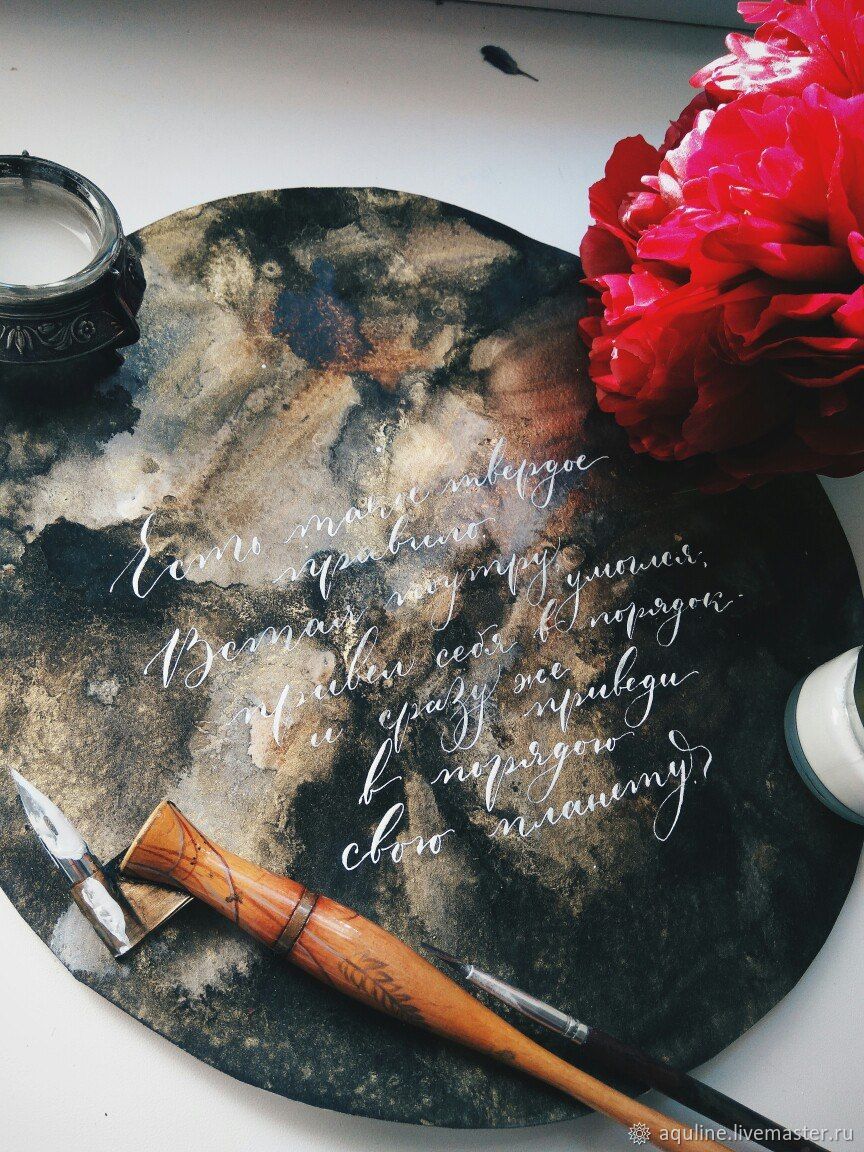 Есть такое твердое
правило.
Встал поутру, умылся,
привел себя в порядок
и сразу же приведи
в порядок
свою планету.
aquline.livemaster.ru